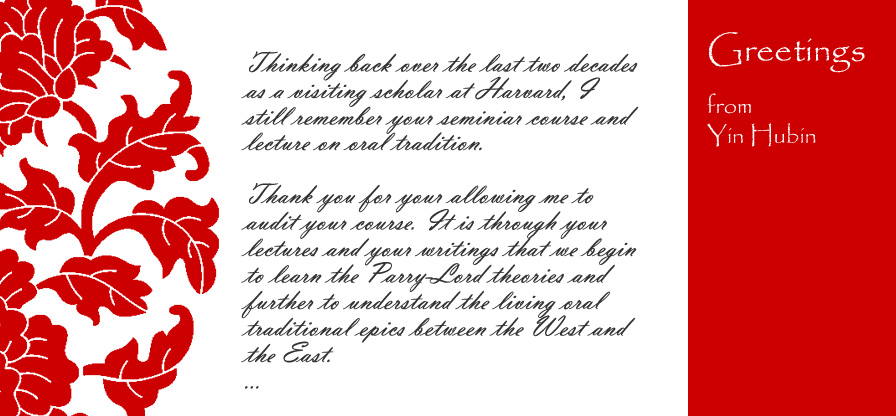 Thinking back over the last two decades
as a visiting scholar at Harvard, I
still remember your seminiar course and
lecture on oral tradition.
Thank you for your allowing me to
audit your course. It is through your
lectures and your writings that we begin
to learn the Parry-Lord theories and
further to understand the living oral
traditional epics between the West and
the East.
...
Greetings
from
Yin Hubin